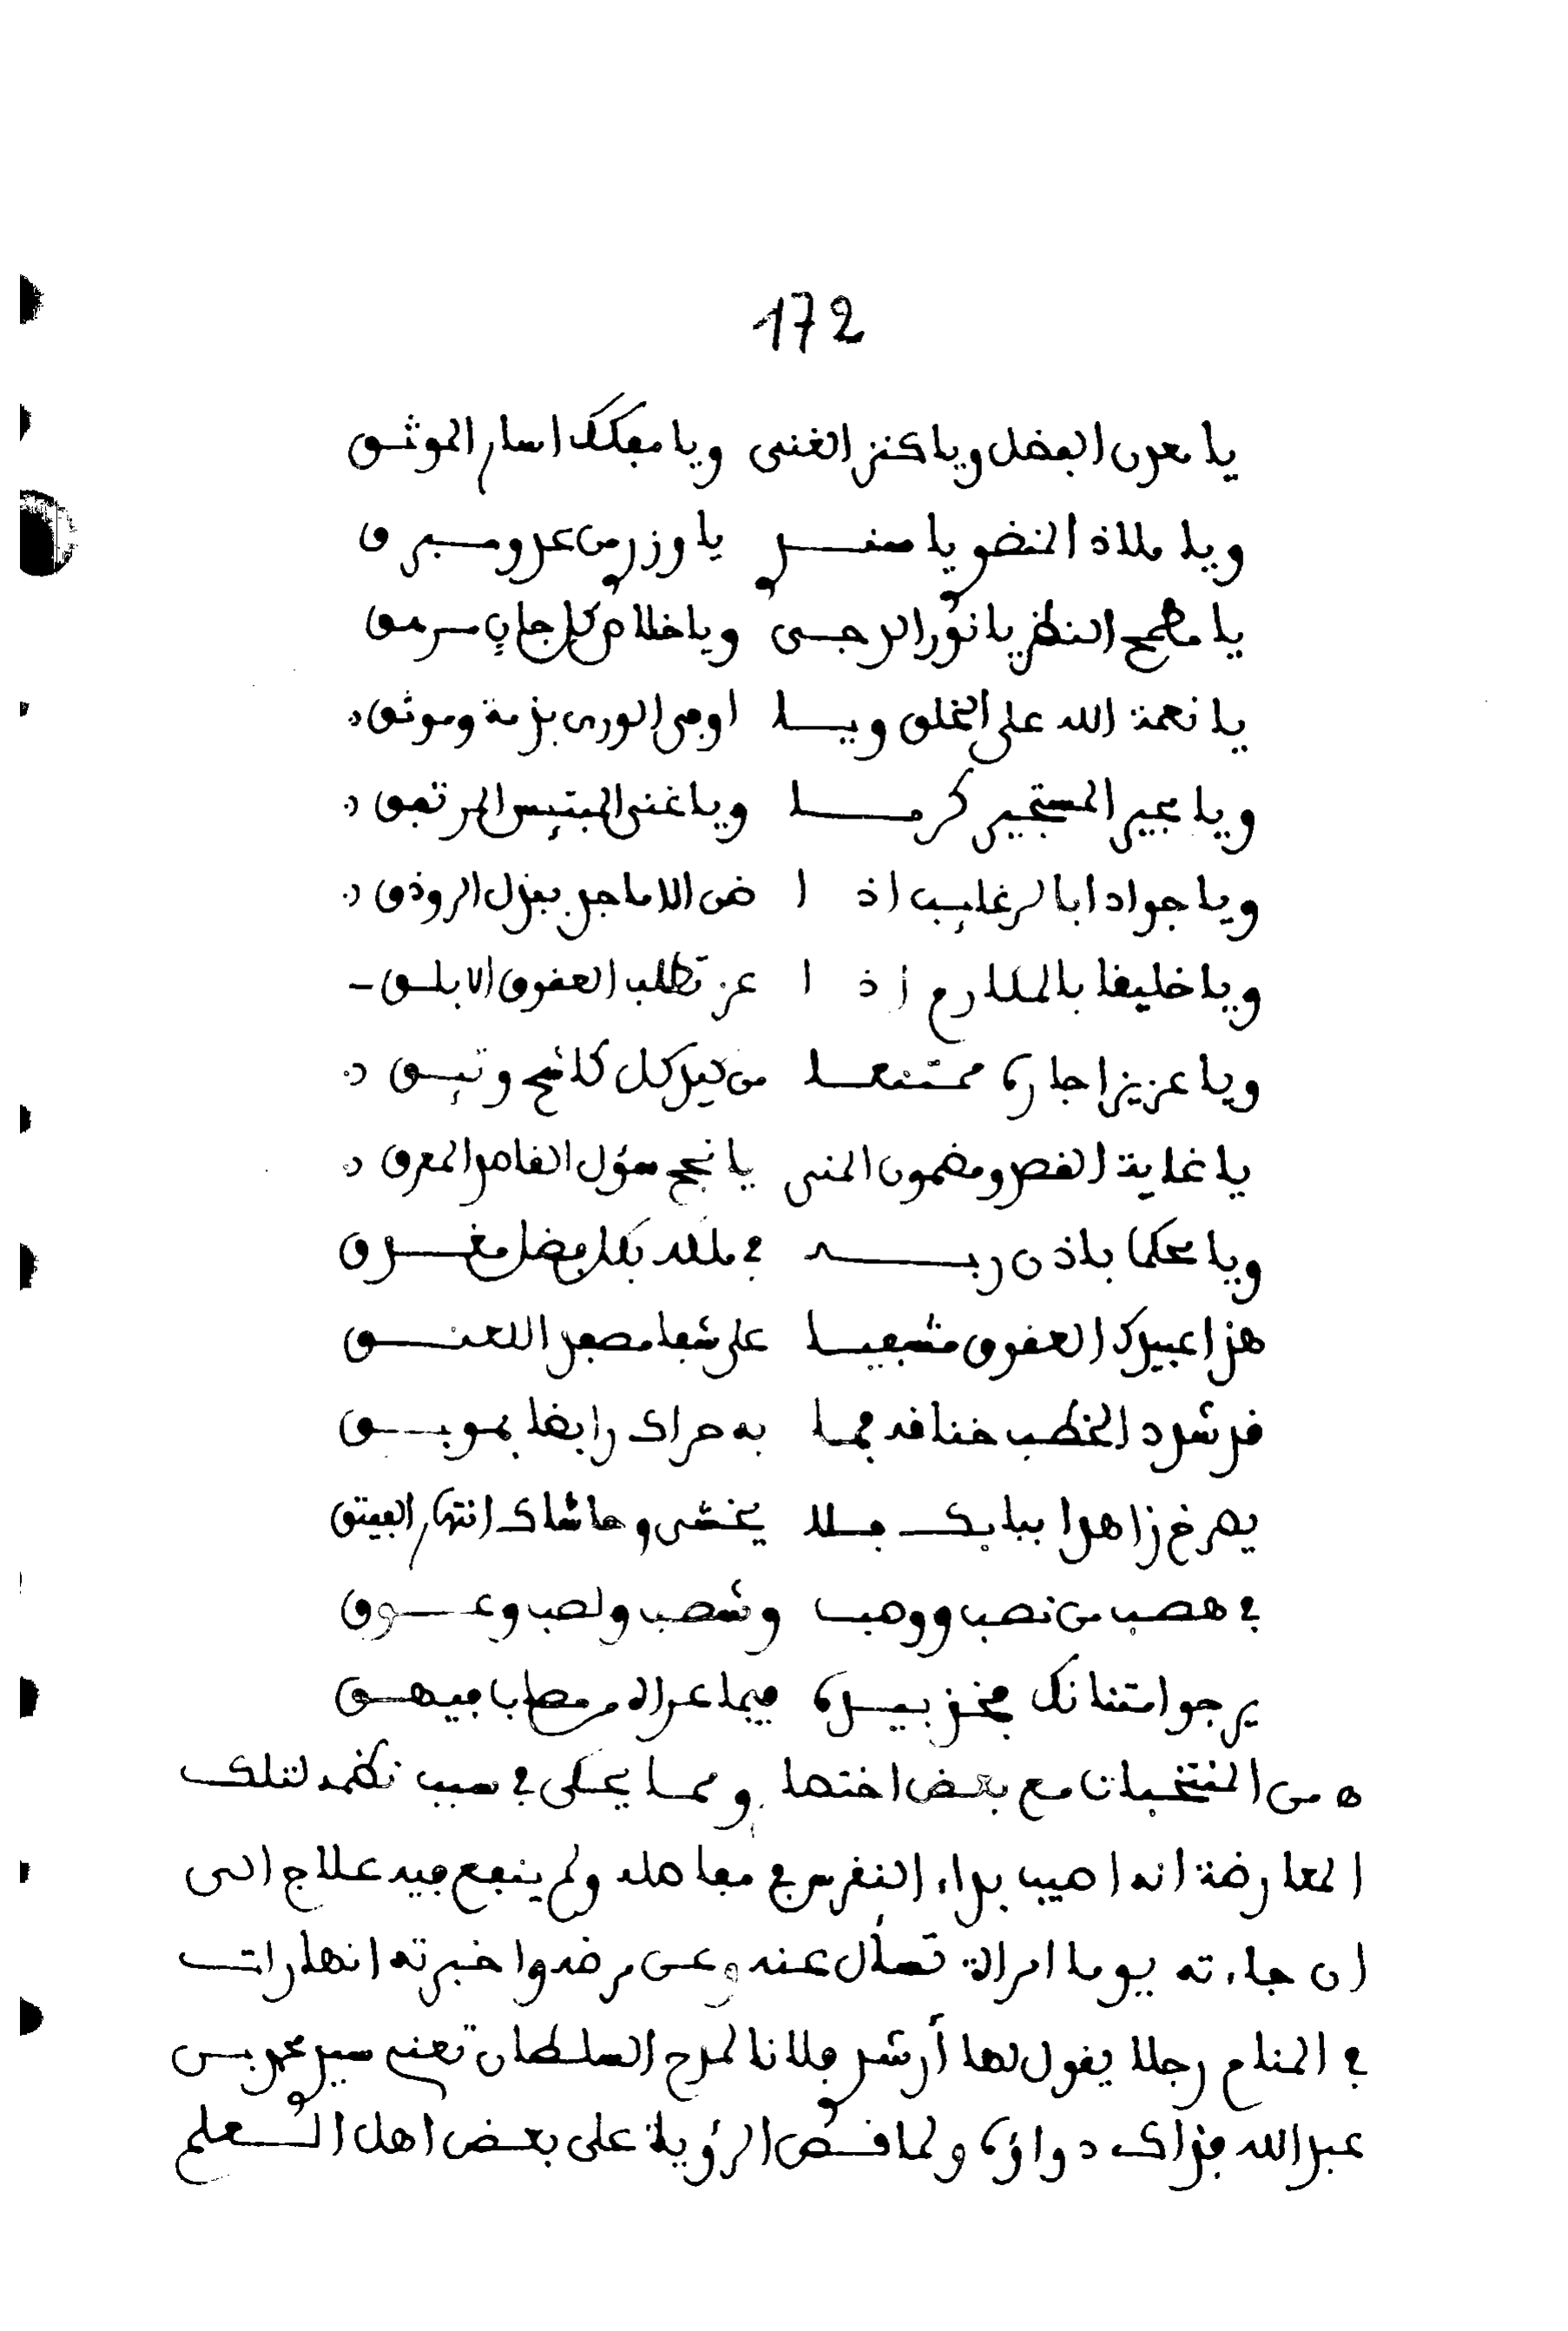 172
يا معدن الفضل ويا كنز الغنى ويا مفكك اسار الموثـق
ويا ملاذ النضو يا سنـــد يا وزر من عدو سبـر ق
يا مطمح النظر يا نور الدجـى ويا خلاص كل جان سرمق
يا نعمة الله على الخلق ويـــا اوفى الورى بذمة وموثق
ويا مجير المستجير كرمـــا ويا غنى المبتيس المرتفق
ويا جوادا بالرغايب اذ ا ضن الاماجد ببذل الروذق
ويا خليقا بالمكارم اذ ا عز تطلب العقوق الابلـق
ويا عزيزا جاره ممتنعـــا من كيد كل كاشح وتيـق
يا غاية القصد ومضمون المنى يا نجح سؤل القاصد المعرق
ويا محكما باذن ربـــه في ملكه بكل فضل مغـــرق
هذا عبيدك العقوق مشفيـــا على شفا مصفد اللعنــق
قد شرد الخطب خناقه فمـــا به حراك رابضا بموبــق
يصرخ زاهدا ببابـك فـــلا يخشى وحاشاك انتهار الفيتق
في هصب من نصب ووصب وشصب ولصب وعـــوق
يرجو امتنانك فخذ بيــده فيما عراه من مصاب فيهــق
ه من المنتخبات مع بعض اختصا ومما يحكى في سبب نظمه لتلك
المعارضة انه اصيب بداء النقرس في مفاصله ولم ينفع فيه علاج الى
ان جاءته يوما امراة تسأل عنه وعن مرضه واخبرته انها رات
في المنام رجلا يقول لها أرشد فلانا لمدح السلطان تعنى سيد محمد بـن
عبد الله فذاك دواؤه ولما قـص الرؤيا على بعض اهل الـعلم